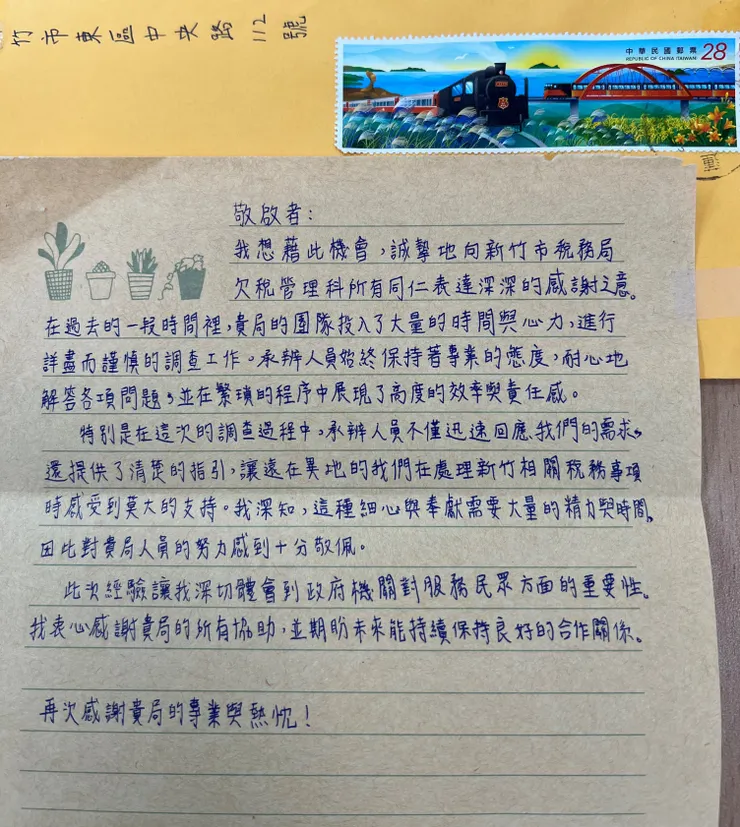 竹市東區中央路112號
中華民國郵票 28
REPUBLIC OF CHINA (TAIWAN)
敬啟者：
我想藉此機會，誠摯地向新竹市稅務局
欠稅管理科所有同仁表達深深的感謝之意。
在過去的一段時間裡，貴局的團隊投入了大量的時間與心力，進行
詳盡而謹慎的調查工作。承辦人員始終保持著專業的態度，耐心地
解答各項問題，並在繁瑣的程序中展現了高度的效率與責任感。
特別是在這次的調查過程中，承辦人員不僅迅速回應我們的需求，
還提供了清楚的指引，讓遠在異地的我們在處理新竹相關稅務事項
時感受到莫大的支持。我深知，這種細心與奉獻需要大量的精力與時間，
因此對貴局人員的努力感到十分敬佩。
此次經驗讓我深切體會到政府機關對服務民眾方面的重要性。
我衷心感謝貴局的所有協助，並期盼未來能持續保持良好的合作關係。
再次感謝貴局的專業與熱忱！